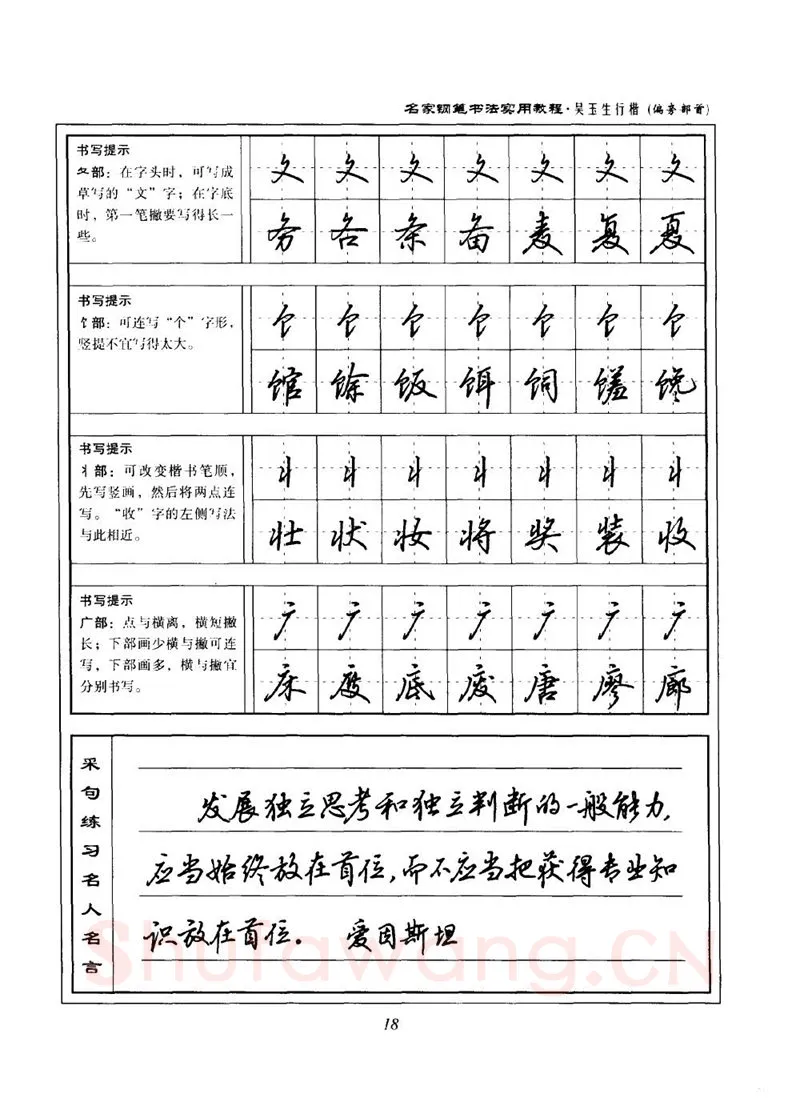 名家钢笔书法实用教程·吴玉生行楷(偏旁部首)
书写提示
夂部：在字头时，可写成
草写的“文”字；在字底
时，第一笔撇要写得长一
些。
夂 夂 夂 夂 夂 夂 夂
务 各 条 备 麦 复 夏
书写提示
饣部：可连写“个”字形，
竖提不宜写得太大。
饣 饣 饣 饣 饣 饣 饣
馆 馀 饭 饵 饲 馐 馋
书写提示
丬部：可改变楷书笔顺，
先写竖画，然后将两点连
写。“收”字的左侧写法
与此相近。
丬 丬 丬 丬 丬 丬 丬
壮 状 妆 将 奖 装 收
书写提示
广部：点与横离，横短撇
长；下部画少横与撇可连
写，下部画多，横与撇宜
分别书写。
广 广 广 广 广 广 广
床 度 底 废 唐 廖 廊
采句练习名人名言
发展独立思考和独立判断的一般能力，
应当始终放在首位，而不应当把获得专业知
识放在首位。 爱因斯坦
Shufawang.CN
18